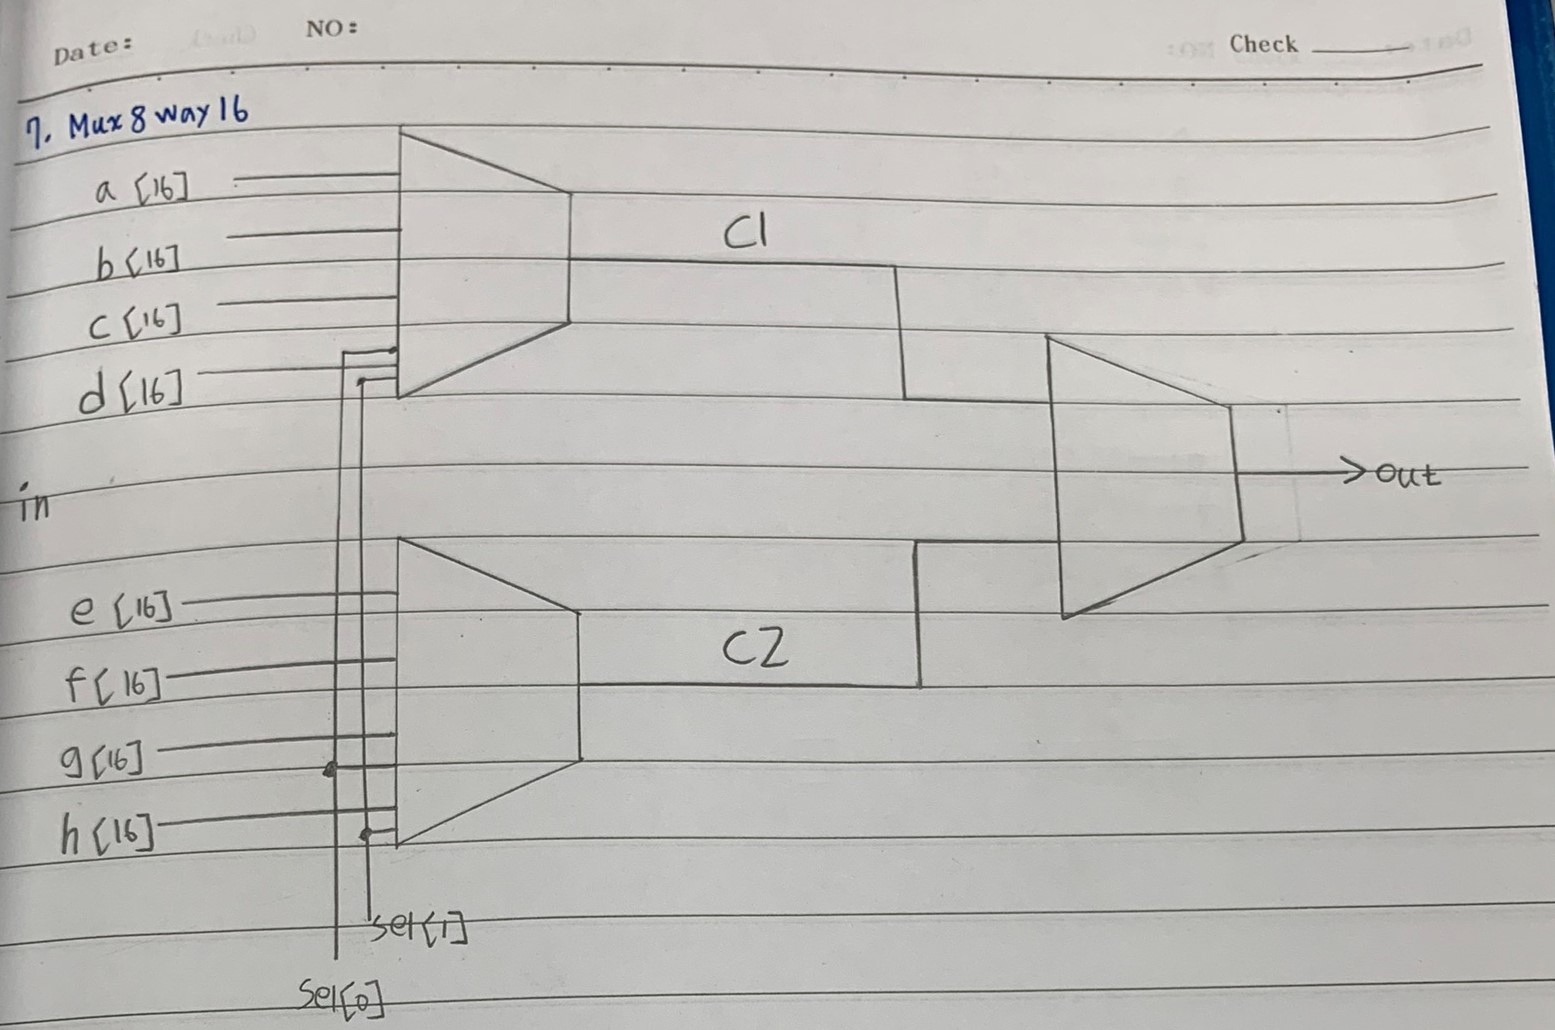 Date: NO: Check
7. Mux 8 way 16
a [16]
b [16]
C1
c [16]
d [16]
in
out
e [16]
f [16]
C2
g [16]
h [16]
sel[1]
sel[0]